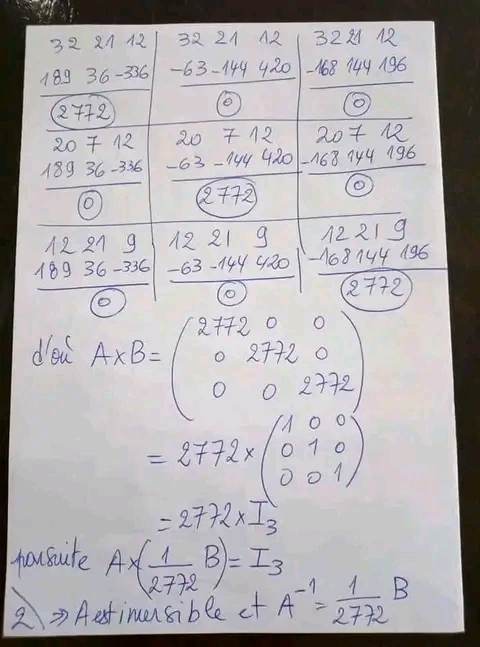 32 21 12 32 21 12 32 21 12
189 36 -336 -63 -144 420 -168 144 196
2772 0 0
20 7 12 20 7 12 20 7 12
189 36 -336 -63 -144 420 -168 144 196
0 2772 0
12 21 9 12 21 9 12 21 9
189 36 -336 -63 -144 420 -168 144 196
0 0 2772
2772 0 0
d'où A×B= 0 2772 0
0 0 2772
1 0 0
= 2772 × 0 1 0
0 0 1
= 2772 × I₃
parsuite A×(1/2772 B) = I₃
2) ⇒ A est inversible et A⁻¹ = 1/2772 B